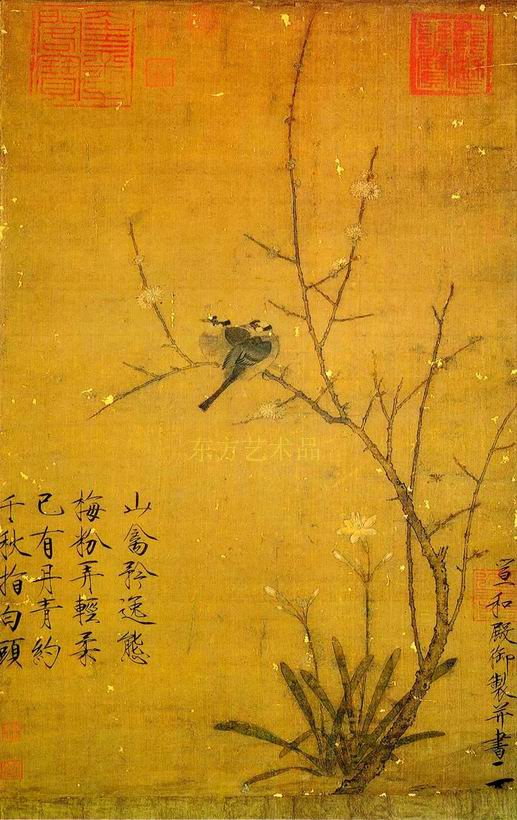 山禽矜逸態
梅粉弄輕柔
已有丹青約
千秋指白頭
宣和殿御製并書
东方艺术品